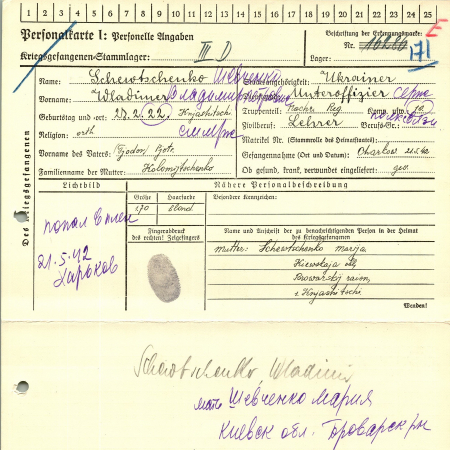 1 2 3 4 5 6 7 8 9 10 11 12 13 14 15 16 17 18 19 20 21 22 23 24 25
Personalkarte I: Personelle Angaben
Beschriftung der Erkennungsmarke
Kriegsgefangenen-Stammlager: III D
Nr.
Lager:
E
Des Kriegsgefangenen
Name: Schewtschenko Шевченко
Staatsangehörigkeit: Ukrainer
Vorname: Wladimer Владимир
Dienstgrad: Unteroffizier
Geburtstag und -ort: 22.
Truppenteil: Reg Komp. usw.:
Religion: orth
Zivilberuf: Lehrer Berufs-Gr.:
Matrikel Nr. (Stammrolle des Heimatstaates):
Vorname des Vaters: Fjodor
Gefangennahme (Ort und Datum): Charkow 21.5.42
Familienname der Mutter: Kolomijtschenko
Ob gesund, krank, verwundet eingeliefert: ges.
Lichtbild
Nähere Personalbeschreibung
Größe Haarfarbe Besondere Kennzeichen:
170 blond
попал в плен
21.5.42
Харьков
Fingerabdruck
des rechten! Zeigefingers
Name und Anschrift der zu benachrichtigenden Person in der Heimat
des Kriegsgefangenen
Mutter: Schewtschenko Marija
Kiewskaja
Browarskij
Wenden!
Schewtschenko, Wladimir
мать Шевченко Мария
Киевск обл. Броварск рн